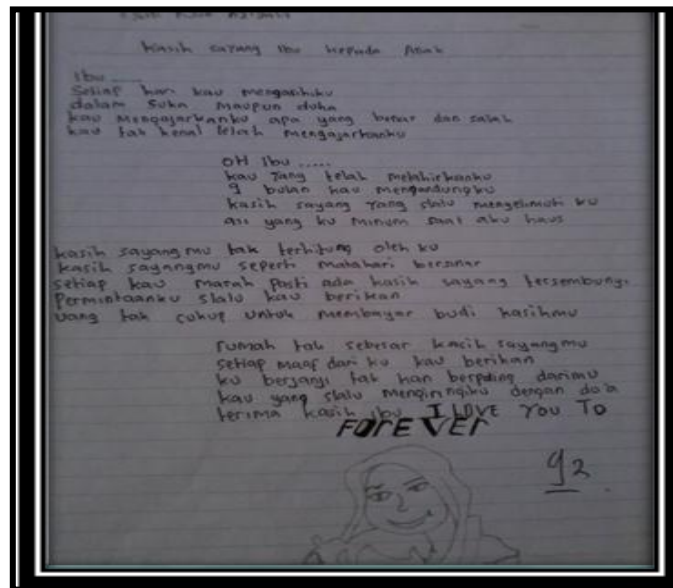 Kasih sayang Ibu kepada Anak
Ibu ......
Setiap hari kau mengasihiku
dalam Suka maupun duka
kau Mengajarkanku apa yang benar dan salah
kau tak kenal lelah mengajarkanku
OH Ibu .....
kau Yang telah melahirkanku
9 bulan kau mengandungku
kasih sayang Yang slalu menyelimuti ku
air yang ku minum saat aku haus
kasih sayang mu tak terhitung oleh ku
kasih sayangmu seperti matahari bersinar
setiap kau marah Pasti ada kasih sayang tersembunyi
Permintaanku slalu kau berikan
uang tak cukup untuk membayar budi kasihmu
rumah tak sebesar kasih sayang mu
setiap maaf dari ku kau berikan
ku berjanji tak kan berpaling darimu
kau yang slalu mengiringiku dengan do'a
terima kasih ibu I LOVE YOU TO
FOrEVEr
92